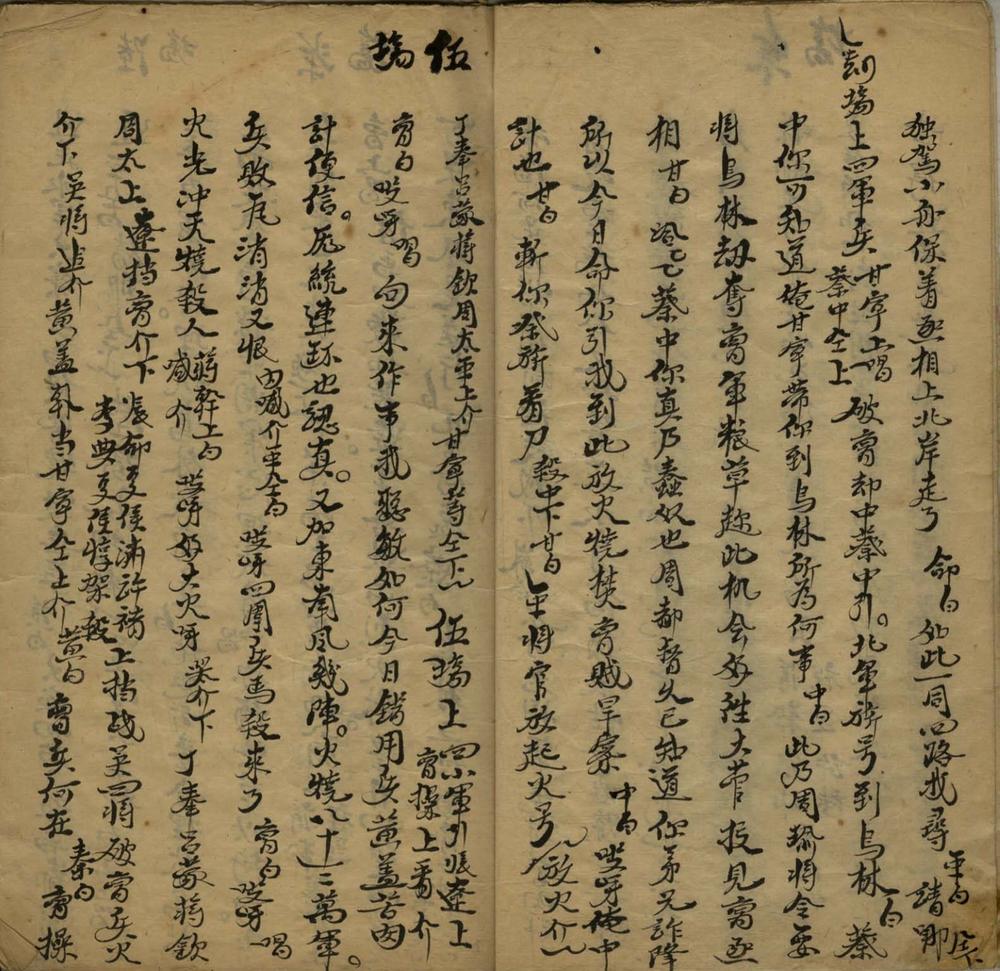 独驾小舟保着丞相上北岸走了 命白 如此一同回路我尋 平白 請哪 全下
└刬場上四軍兵 甘寧上唱 蔡中仝上 破曹却中蔡中引。北軍旂号到烏林 白 蔡
中你可知道俺甘寧帶你到烏林所為何事 中白 此乃周瑜將令要
将烏林刼奪曹軍粮草趂此机会好往大营投見曹丞
相 甘白 蔡中你真乃蠢奴也周都督久已知道你弟兄詐降
所以今日命你引我到此放火燒焚曹賊旱寨 中白 哎呀俺中
計也 甘白 斬你祭旂看刀 殺中下 甘白 众将官放起火号 放火介
伍場
丁奉吕蒙蔣欽周太平上介甘寧等仝下 伍場上四小軍引張遼上 曹操上看介
曹白 哎呀 唱 句來作事我聡敏如何今日錯用兵黃盖苦肉
計便信。龐統連环也認真。又加東南風幾陣。火燒八十三萬軍。
兵敗瓦消消又恨 内喊介平仝白 哎呀四圍兵馬殺來了 曹白 哎呀 唱
火光冲天燒殺人。 蔣幹上白 喊介 哎呀好大火呀 哭介下 丁奉吕蒙蔣欽
周太上 遼挡曹介下 張郃夏侯渊許褚 李典夏侯惇架殺 上挡战吴四将 破曹兵火
介下吴将追介黃盖韩当甘寧仝上介 黃白 曹兵何在 秦白 曹操